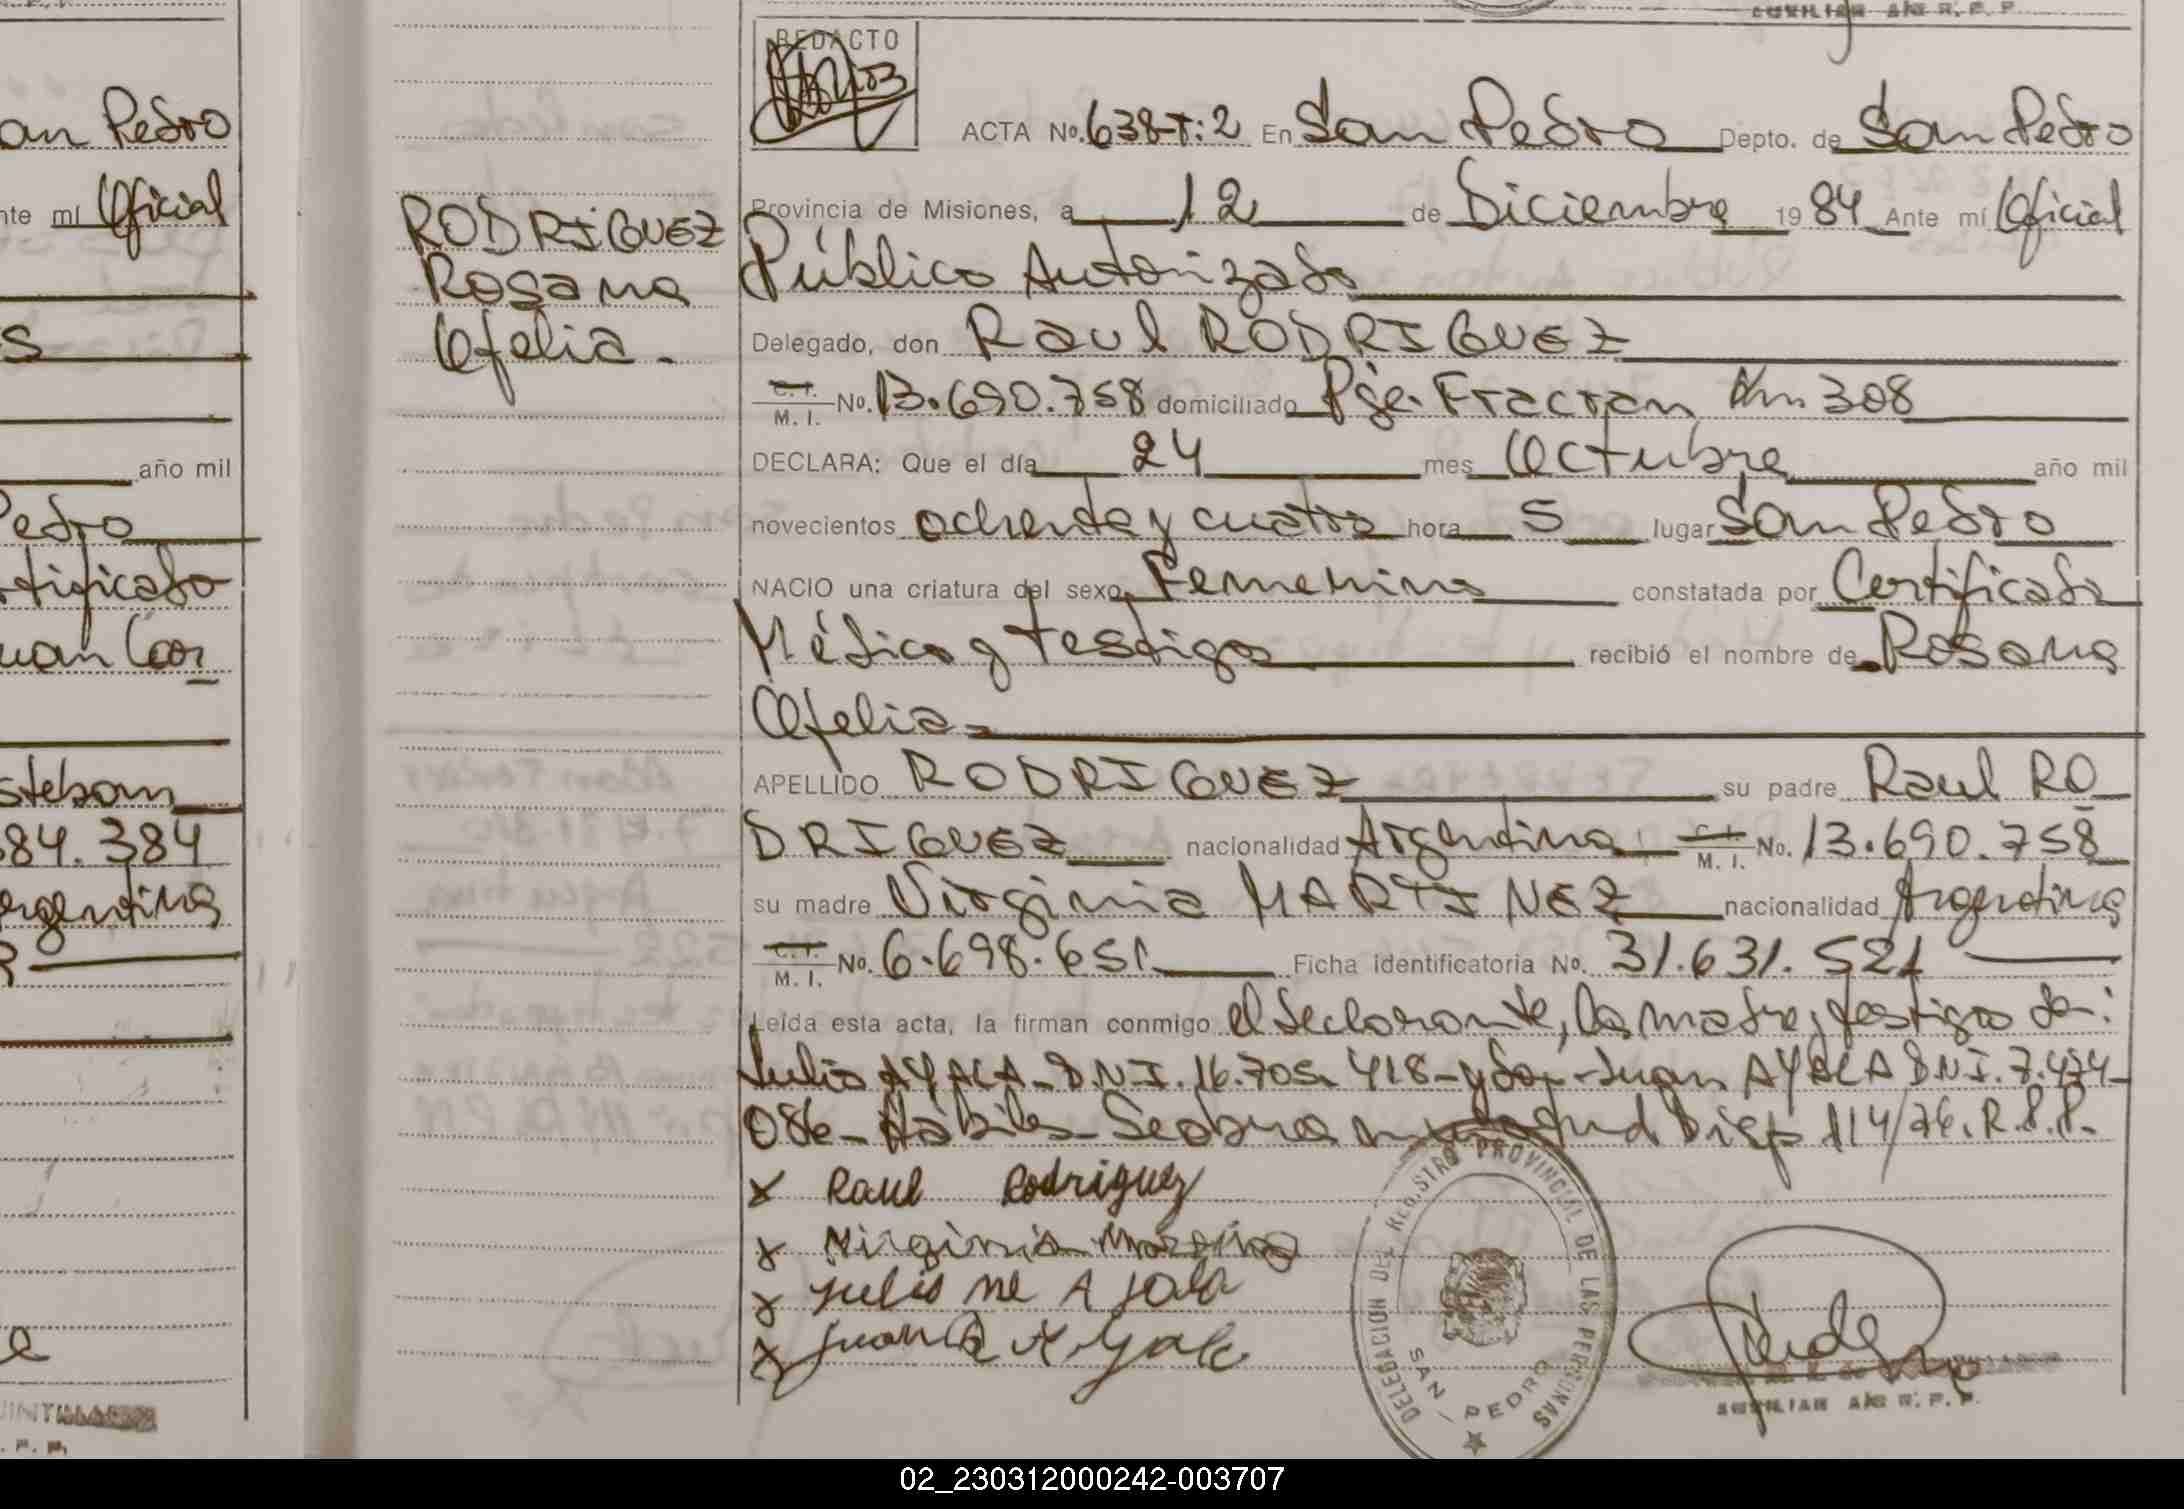 AUXILIAR A/C R. P. P.
an Pedro
nte mí Oficial
s
año mil
Pedro
rtificado
uan Car
steban
384
rgentina
RODRIGUEZ
Rosana
Ofelia.
REDACTO
ACTA No. 638-T:2 En San Pedro Depto. de San Pedro
Provincia de Misiones, a 12 de Diciembre 1984 Ante mí Oficial
Público Autorizado
Delegado, don Raul RODRIGUEZ
C. I. M. I. No. 13.690.758 domiciliado Pje. Fracran Km 308
DECLARA: Que el día 24 mes Octubre año mil
novecientos ochenta y cuatro hora 5 lugar San Pedro
NACIO una criatura del sexo Femenino constatada por Certificado
Médico y testigos recibió el nombre de Rosana
Ofelia
APELLIDO RODRIGUEZ su padre Raul RO
DRIGUEZ nacionalidad Argentina C. I. M. I. No. 13.690.758
su madre Virginia MARTINEZ nacionalidad Argentina
C. I. M. I. No. 6.698.651 Ficha identificatoria No. 31.631.521
Leída esta acta, la firman conmigo el declarante, la madre y testigos don:
Julio AYALA - DNI. 16.705.418 - y don - Juan AYALA DNI. 7.474-
086 - Hábiles - Disp 114/76. R.P.P.
x Raul Rodriguez
x Virginia
x Julio Ayala
x
DELEGACION DEL REGISTRO PROVINCIAL DE LAS PERSONAS
SAN PEDRO
AUXILIAR A/C R. P. P.
02_230312000242-003707